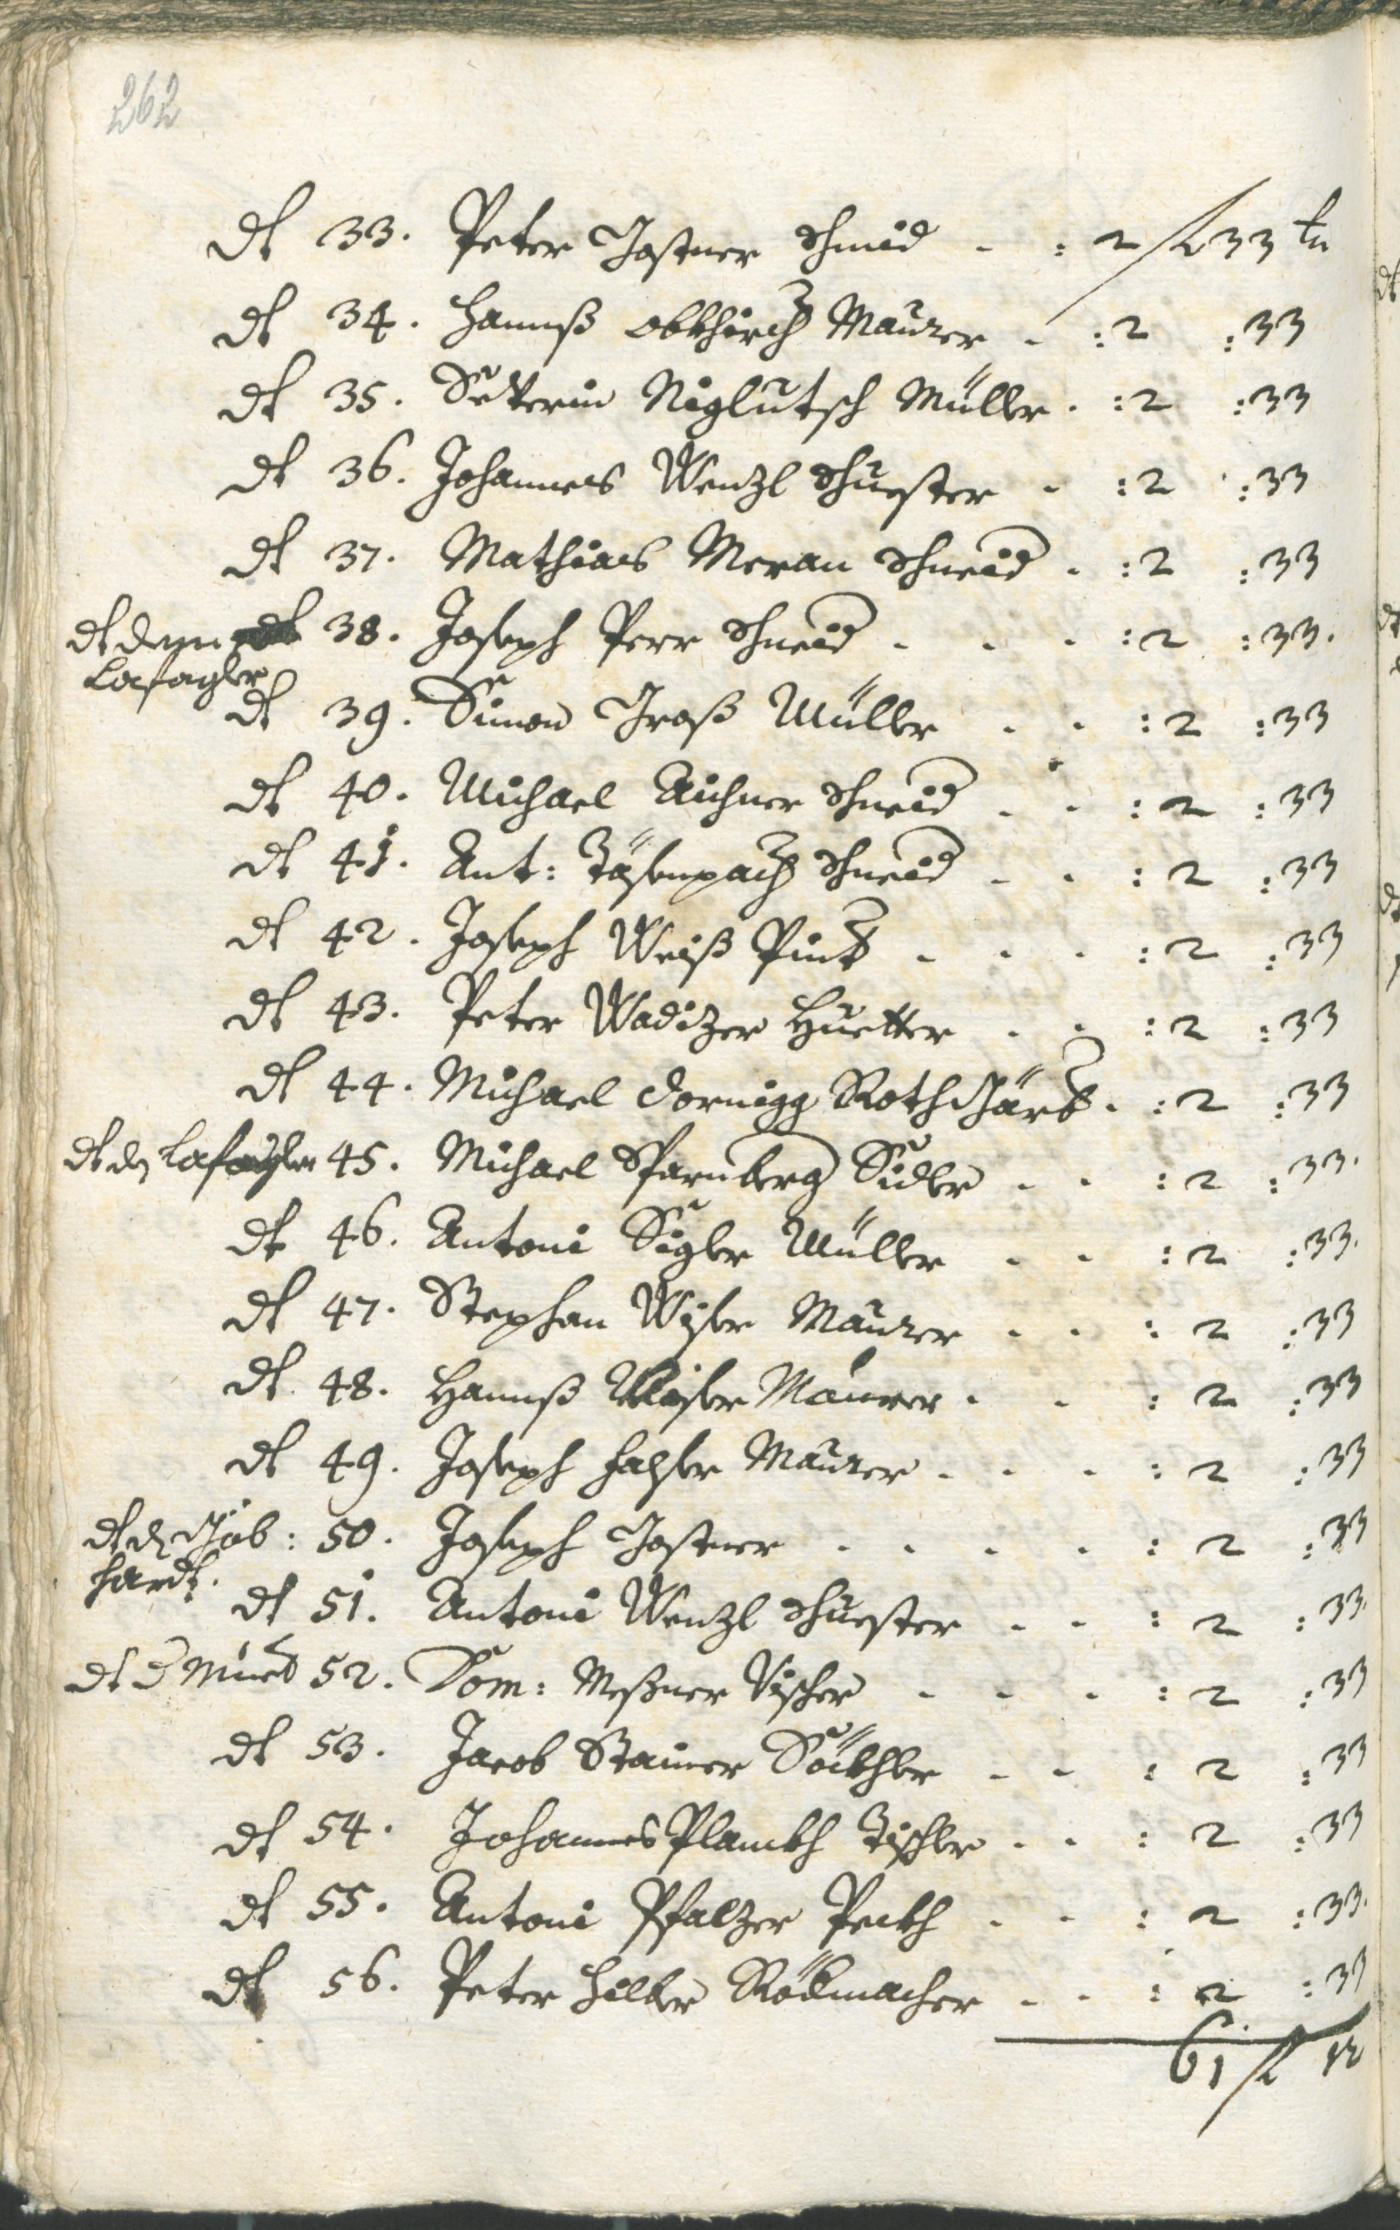 262
dt 33. Peter Jostner Schmid - : 2 f 33 kr
dt 34. Hannß Obkhirch Maurer - : 2 : 33
dt 35. Severin Niglutsch Müller . : 2 : 33
dt 36. Johannes Wenzl Schuester - : 2 : 33
dt 37. Mathias Meran Schneid - : 2 : 33
dt dem 38. Joseph Perr Schneid - - - : 2 : 33.
Lafogler
dt 39. Simon Jraß Müller - - : 2 : 33
dt 40. Michael Aichner Schneid - - : 2 : 33
dt 41. Ant: Täsenpach Schneid - - : 2 : 33
dt 42. Joseph Weiß Pint - - - : 2 : 33
dt 43. Peter Wadizer Huetter - - : 2 : 33
dt 44. Michael Dornigg Rothschärb . : 2 : 33
dt d Lafogler 45. Michael Sparnberg Sidler - - : 2 : 33.
dt 46. Antoni Sigler Müller - - : 2 : 33.
dt 47. Stephan Wiser Maurer - - : 2 : 33
dt 48. Hannß Wiser Maurer - - : 2 : 33
dt 49. Joseph Falser Maurer - - - : 2 : 33
dt d 50. Joseph Jostner - - - - : 2 : 33
dt 51. Antoni Wenzl Schuester - - : 2 : 33.
dt 52. Dom: Meßner Vischer - - - : 2 : 33
dt 53. Jacob Stainer Söckhler - - : 2 : 33
dt 54. Johannes Planckh Tischler - - : 2 : 33
dt 55. Antoni Pfalzer Peckh - - : 2 : 33.
dt 56. Peter Hilber Rödmacher - - : 2 : 33
61 f 12